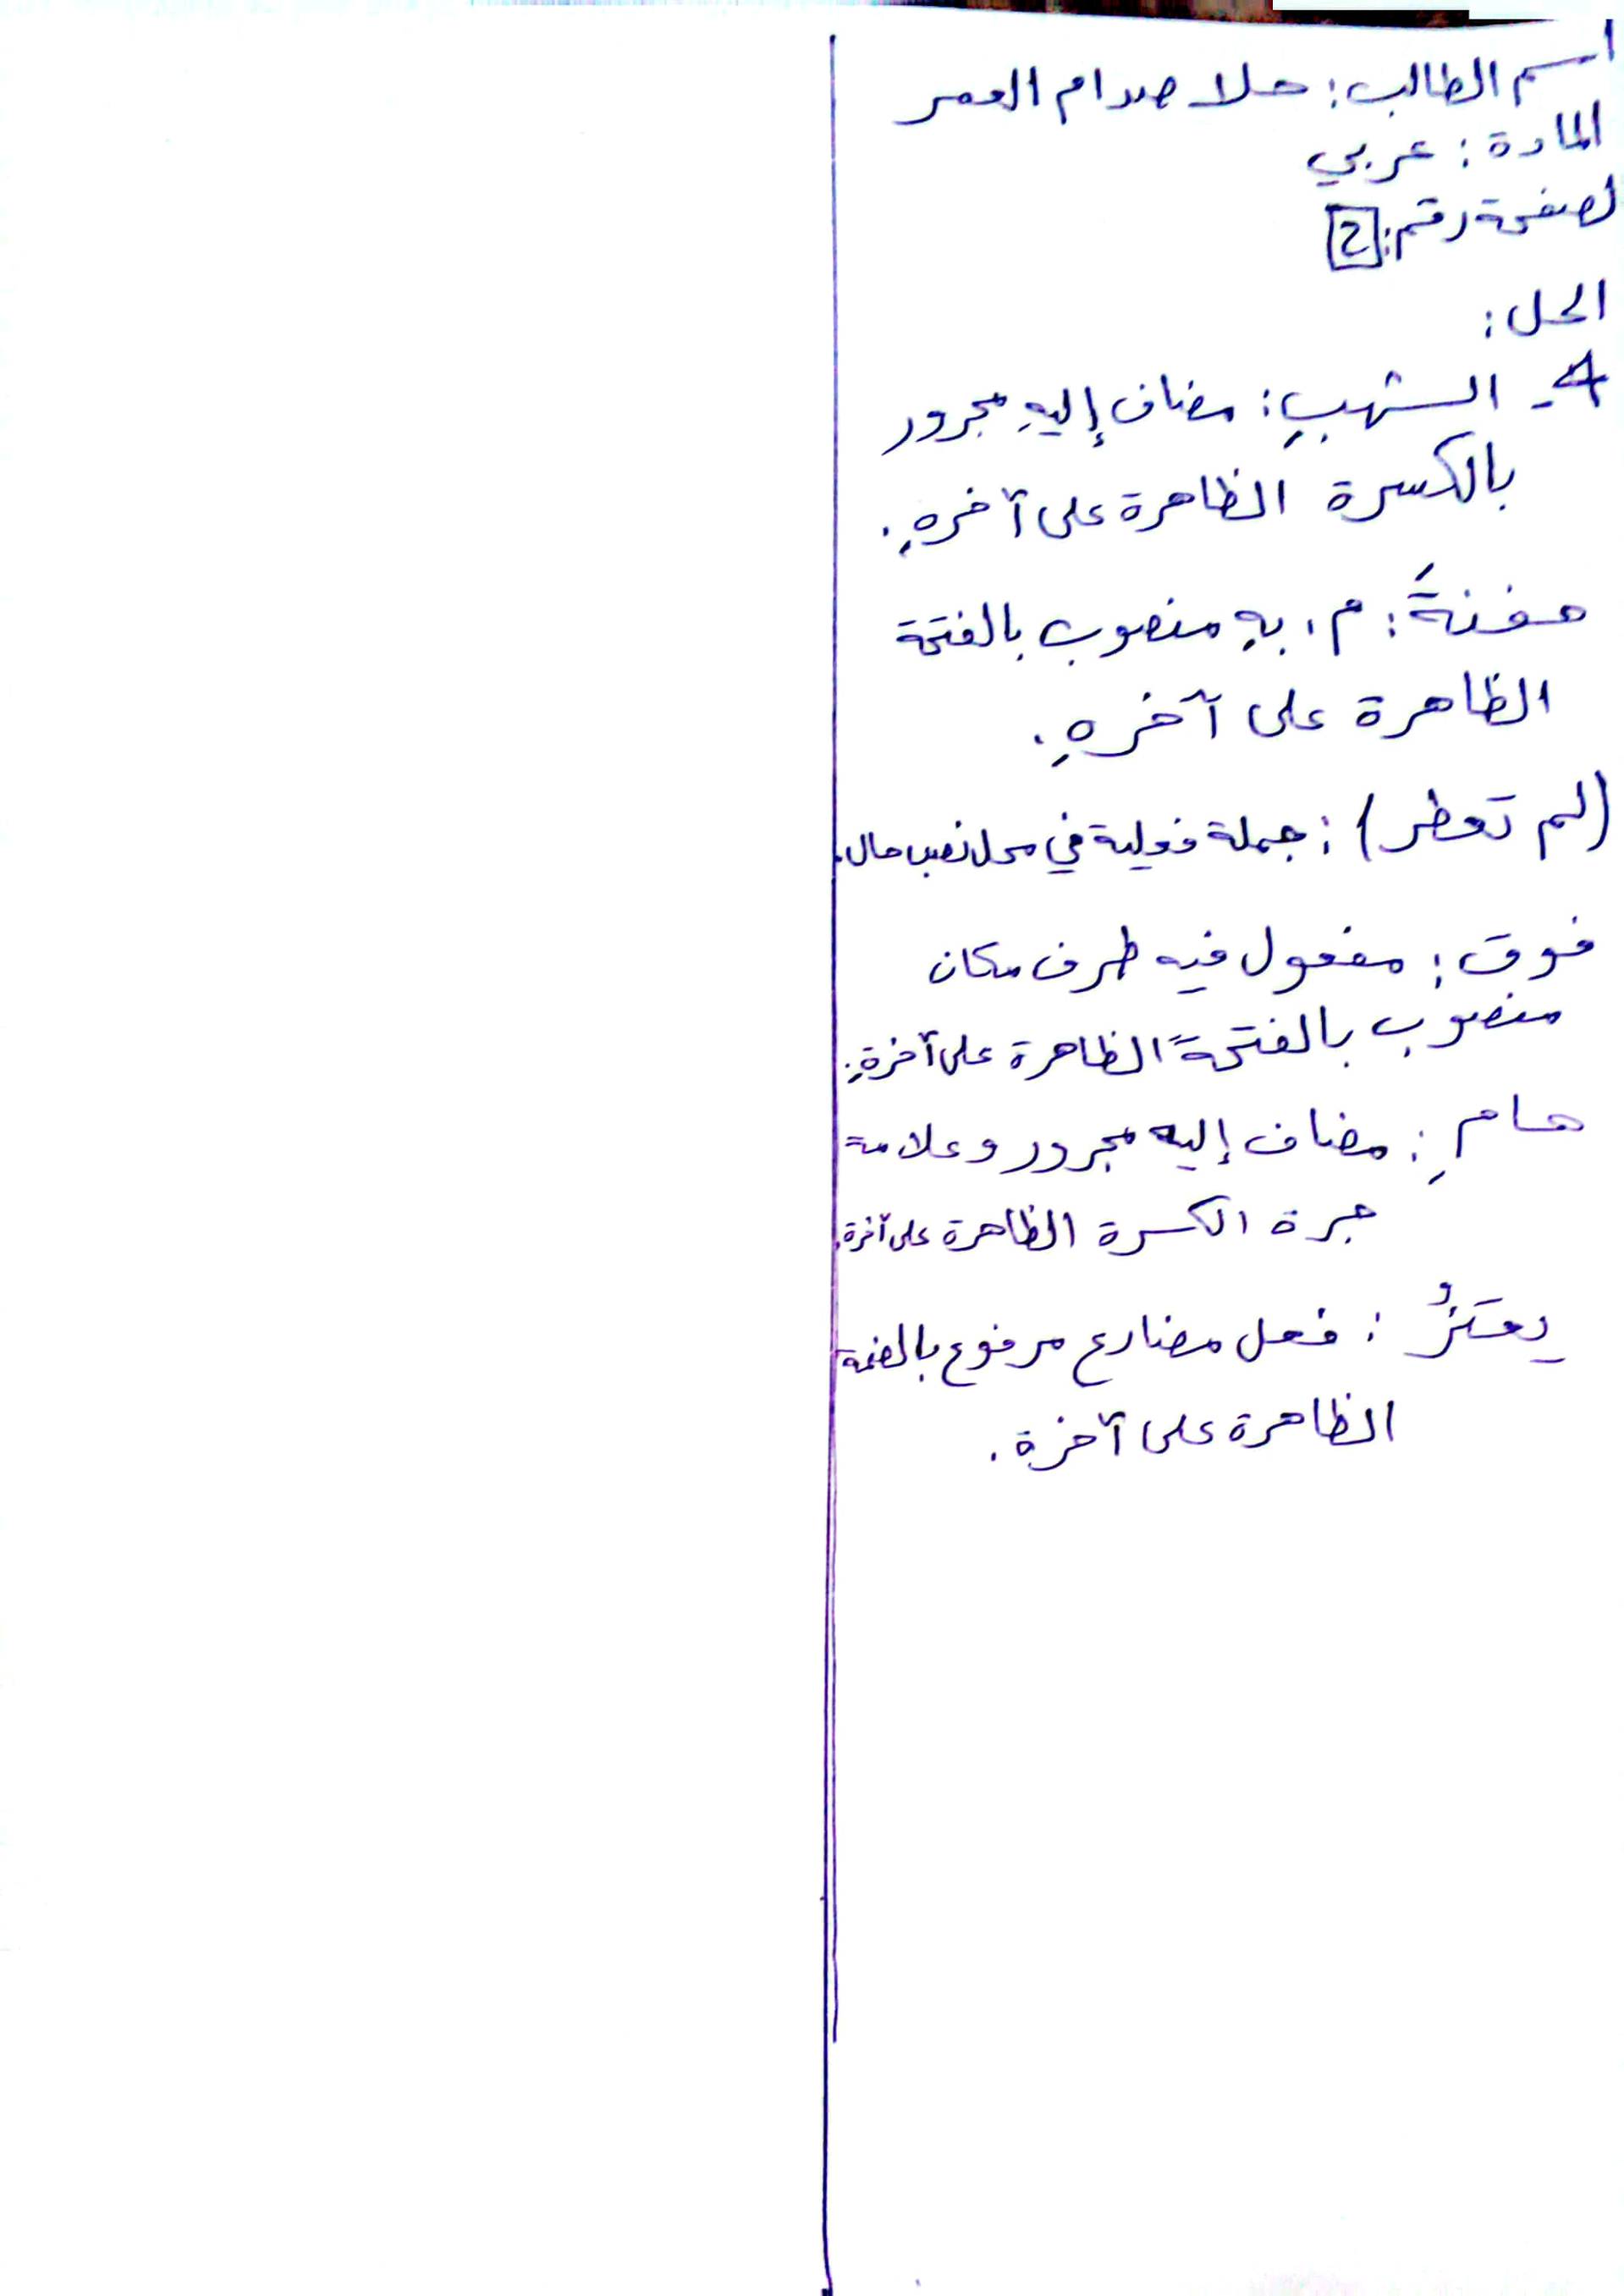 اسم الطالب: حلا صدام العمر
المادة: عربي
لصفحة رقم: 2
الحل:
4- الشهبِ: مضاف إليهِ مجرور
بالكسرة الظاهرة على آخرهِ.
حفنةً: م. بهِ منصوب بالفتحة
الظاهرة على آخرهِ.
(لم تعطر): جملة فعلية في محل نصب حال.
فوق: مفعول فيه ظرف مكان
منصوب بالفتحة الظاهرة على آخرةِ.
هامِ: مضاف إليه مجرور وعلامة
جرة الكسرة الظاهرة على آخرة.
يعتزُ: فعل مضارع مرفوع بالضمة
الظاهرة على آخرة.